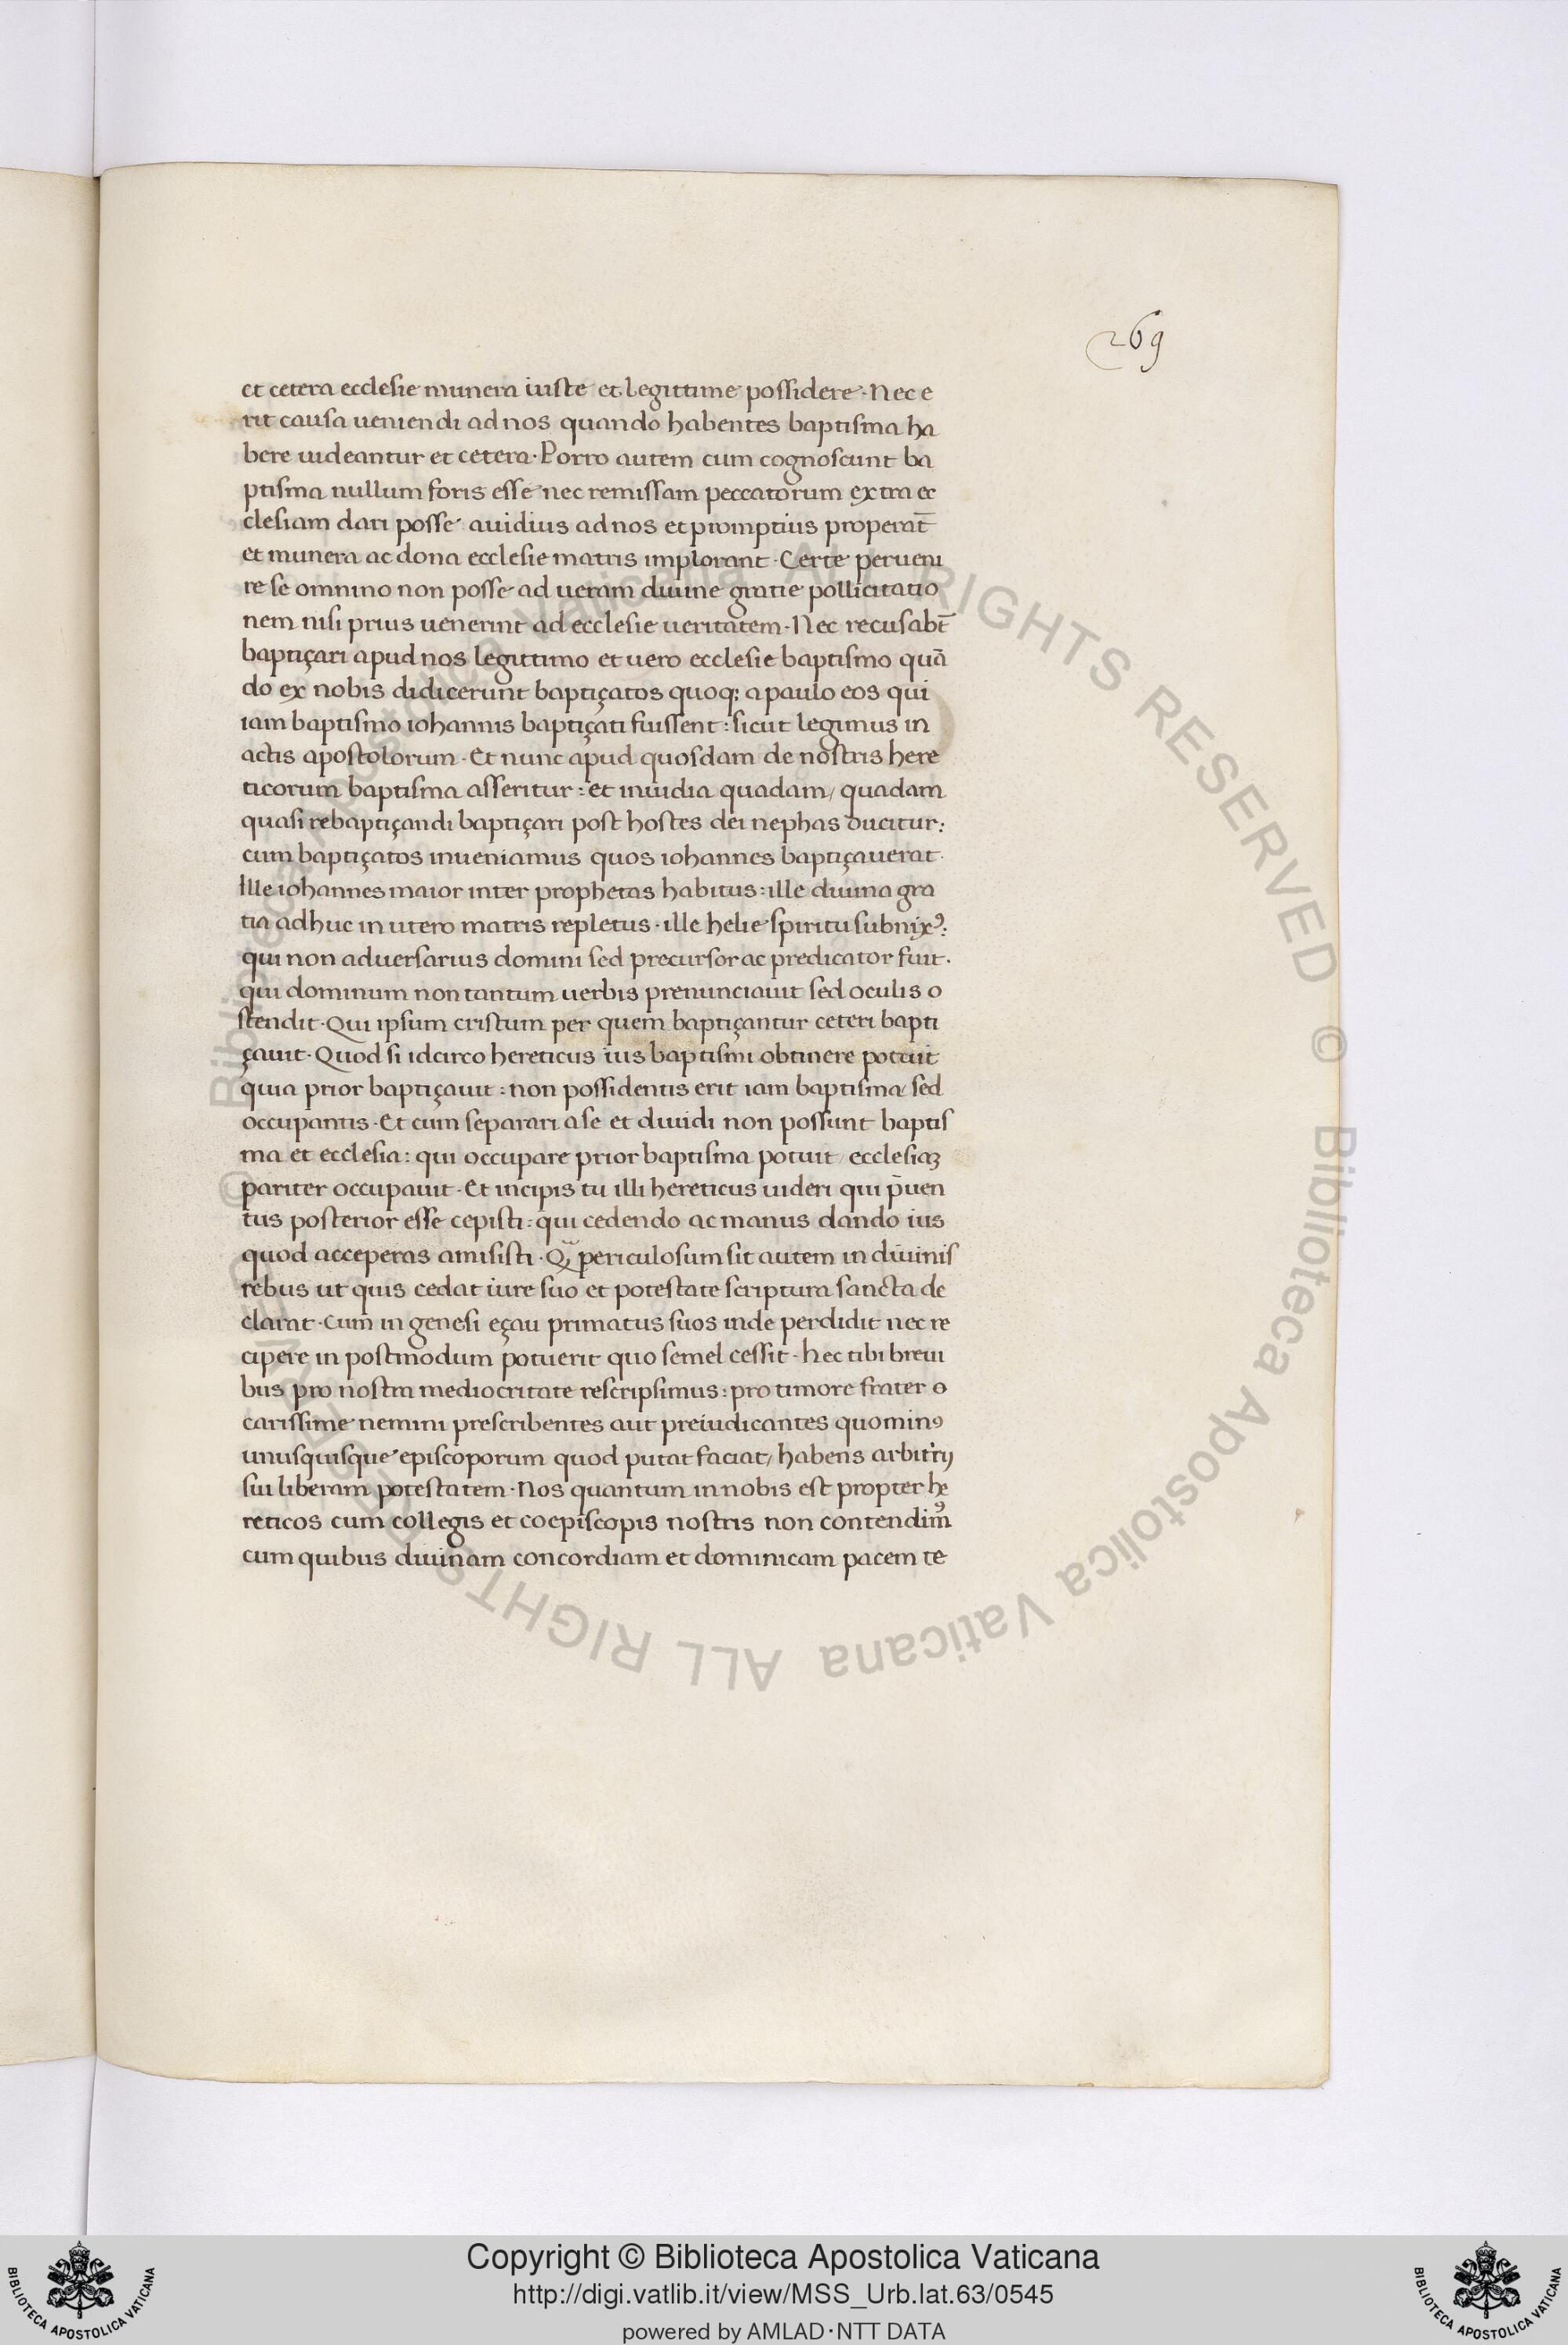 269
et cetera ecclesie munera iuste et legittime possidere · Nec e
rit causa ueniendi ad nos quando habentes baptisma ha
bere uideantur et cetera · Porro autem cum cognoscunt ba
ptisma nullum foris esse nec remissam peccatorum extra ec
clesiam dari posse auidius ad nos et promptius properat̄
et munera ac dona ecclesie matris implorant · Certe perueni
re se omnino non posse ad ueram diuine gratie pollicitatio
nem nisi prius uenerint ad ecclesie ueritatem · Nec recusabt̄
baptiçari apud nos legittimo et uero ecclesie baptismo quā
do ex nobis didicerunt baptiçatos quoq; a paulo eos qui
iam baptismo iohannis baptiçati fuissent : sicut legimus in
actis apostolorum · Et nunc apud quosdam de nostris here
ticorum baptisma asseritur : et inuidia quadam / quadam
quasi rebaptiçandi baptiçari post hostes dei nephas ducitur :
cum baptiçatos inueniamus quos iohannes baptiçauerat ·
Ille iohannes maior inter prophetas habitus : ille diuina gra
tia adhuc in utero matris repletus · ille helie spiritu subnixꝰ :
qui non aduersarius domini sed precursor ac predicator fuit ·
qui dominum non tantum uerbis prenunciauit sed oculis o
stendit · Qui ipsum cristum per quem baptiçantur ceteri bapti
çauit · Quod si idcirco hereticus ius baptismi obtinere potuit
quia prior baptiçauit : non possidentis erit iam baptisma / sed
occupantis · Et cum separari a se et diuidi non possunt baptis
ma et ecclesia : qui occupare prior baptisma potuit / ecclesiaꝫ
pariter occupauit · Et incipis tu illi hereticus uideri qui p̄uen
tus posterior esse cepisti : qui cedendo ac manus dando ius
quod acceperas amisisti · Qͣ; periculosum sit autem in diuinis
rebus ut quis cedat iure suo et potestate scriptura sancta de
clarat · Cum in genesi eçau primatus suos inde perdidit nec re
cipere in postmodum potuerit quo semel cessit · hec tibi breui
bus pro nostra mediocritate rescripsimus : pro timore frater o
carissime nemini prescribentes aut preiudicantes quominꝰ
unusquisque episcoporum quod putat faciat / habens arbitrij
sui liberam potestatem · Nos quantum in nobis est propter he
reticos cum collegis et coepiscopis nostris non contendimꝰ
cum quibus diuinam concordiam et dominicam pacem te
© Biblioteca Apostolica Vaticana ALL RIGHTS RESERVED © Biblioteca Apostolica Vaticana ALL RIGHTS RESERVED
Copyright © Biblioteca Apostolica Vaticana
http://digi.vatlib.it/view/MSS_Urb.lat.63/0545
powered by AMLAD·NTT DATA
BIBLIOTECA APOSTOLICA VATICANA
BIBLIOTECA APOSTOLICA VATICANA